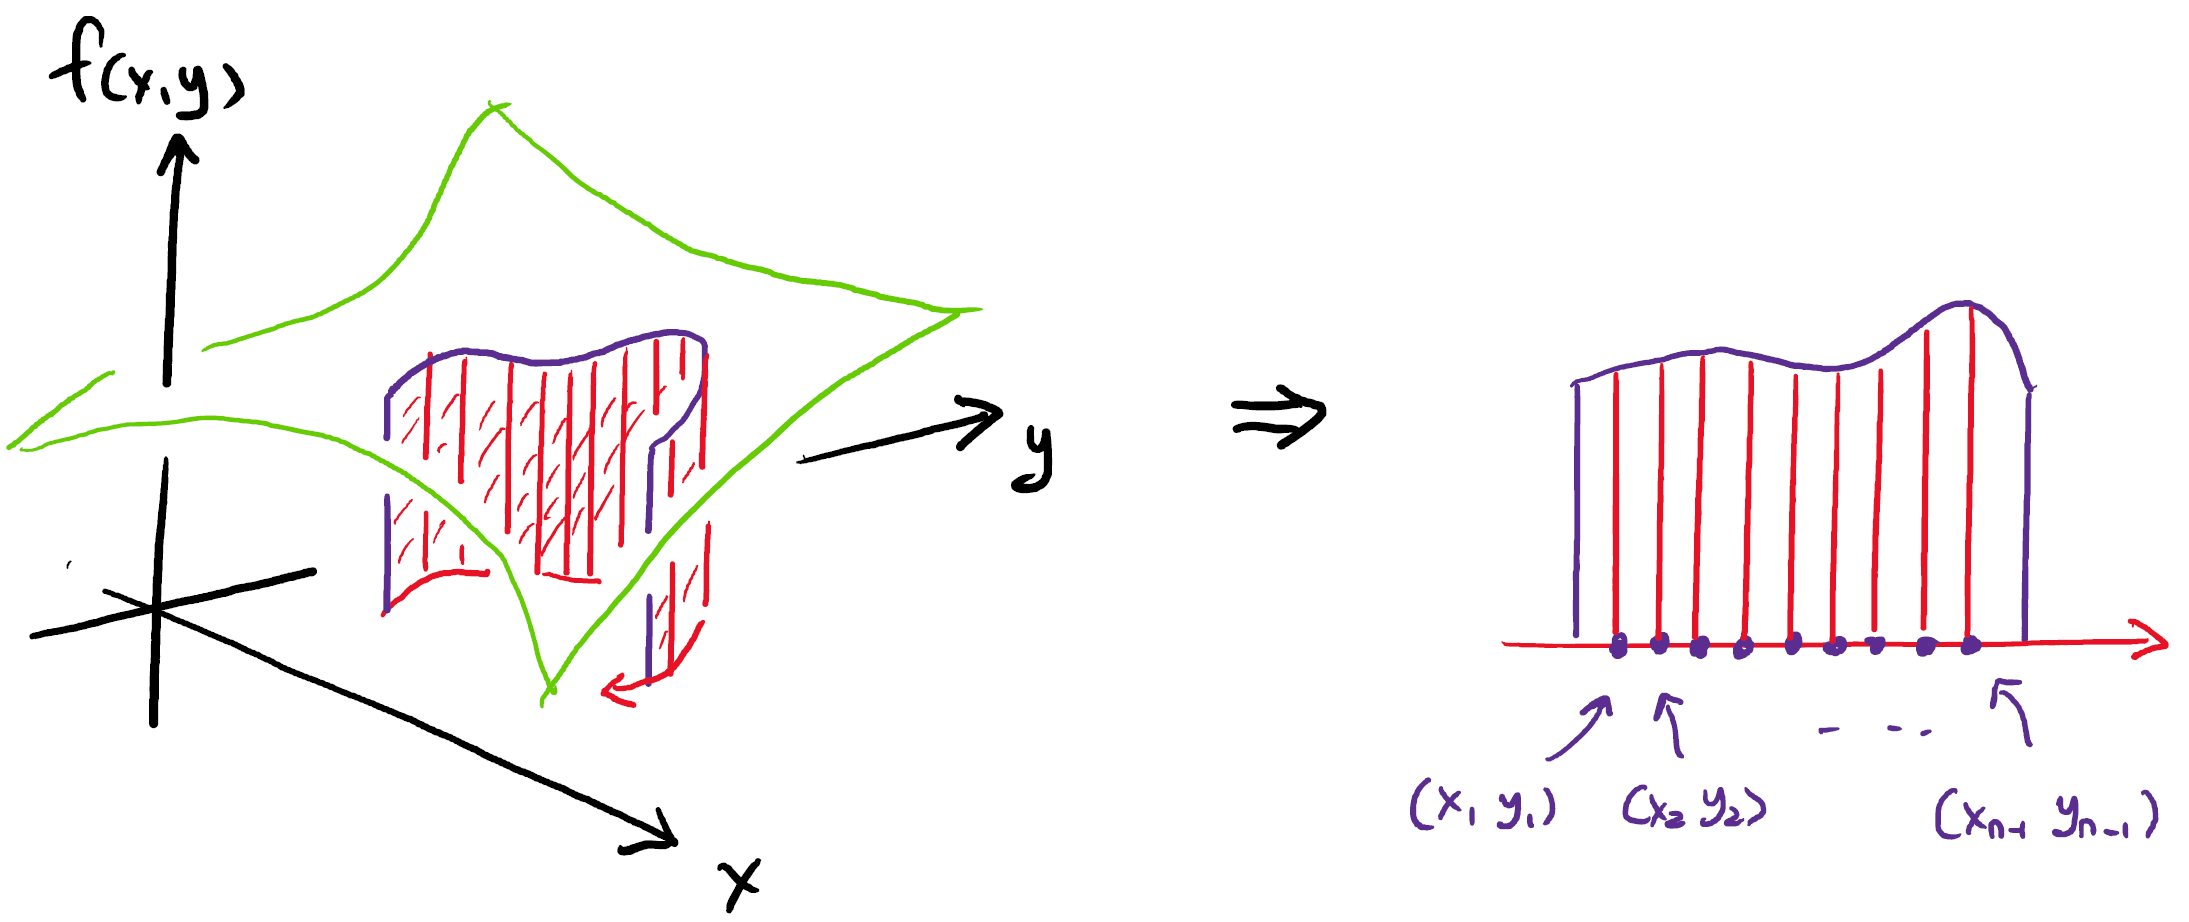 f(x,y)
y
x
⇒
(x₁ y₁) (x₂ y₂) - - - (xₙ₋₁ yₙ₋₁)